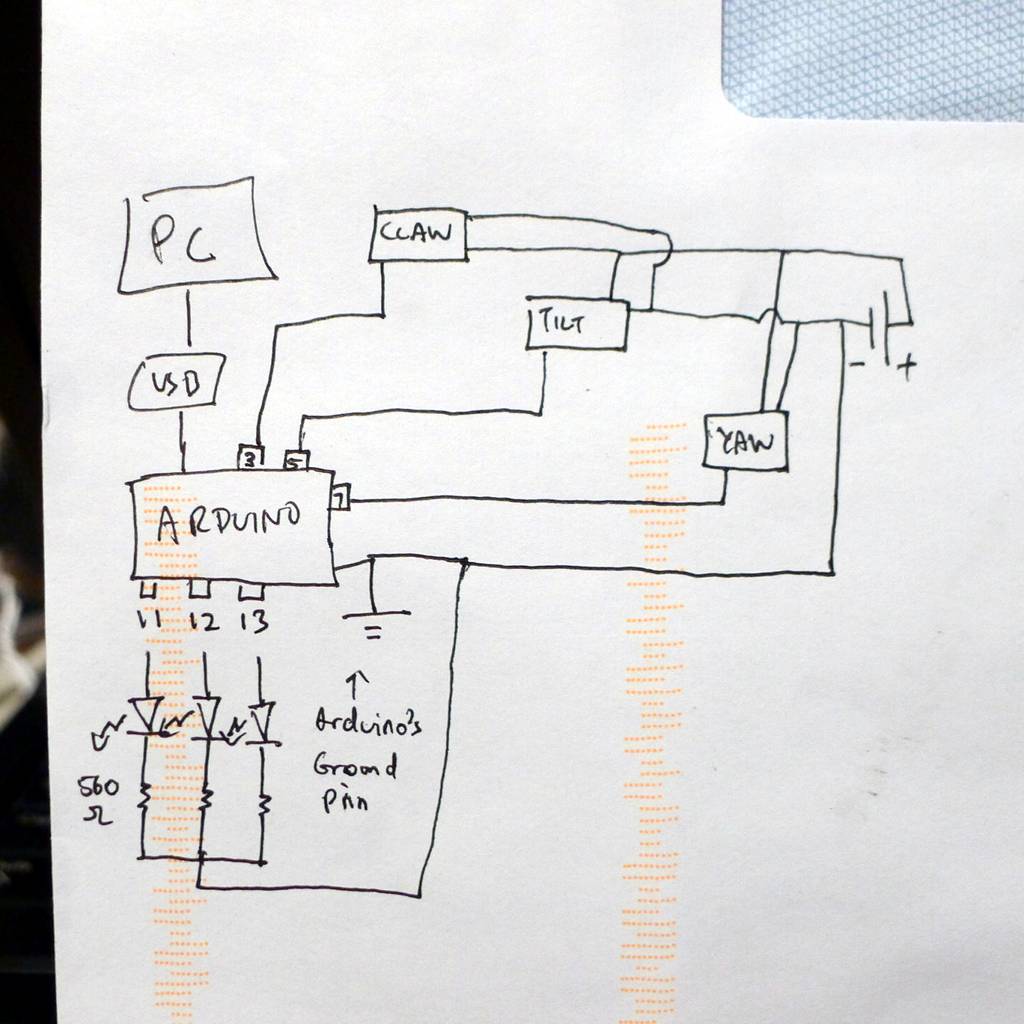 PC
CLAW
TILT
- +
USB
3 5
YAW
7
ARDUINO
11 12 13
Arduino's
Ground
pin
560
Ω